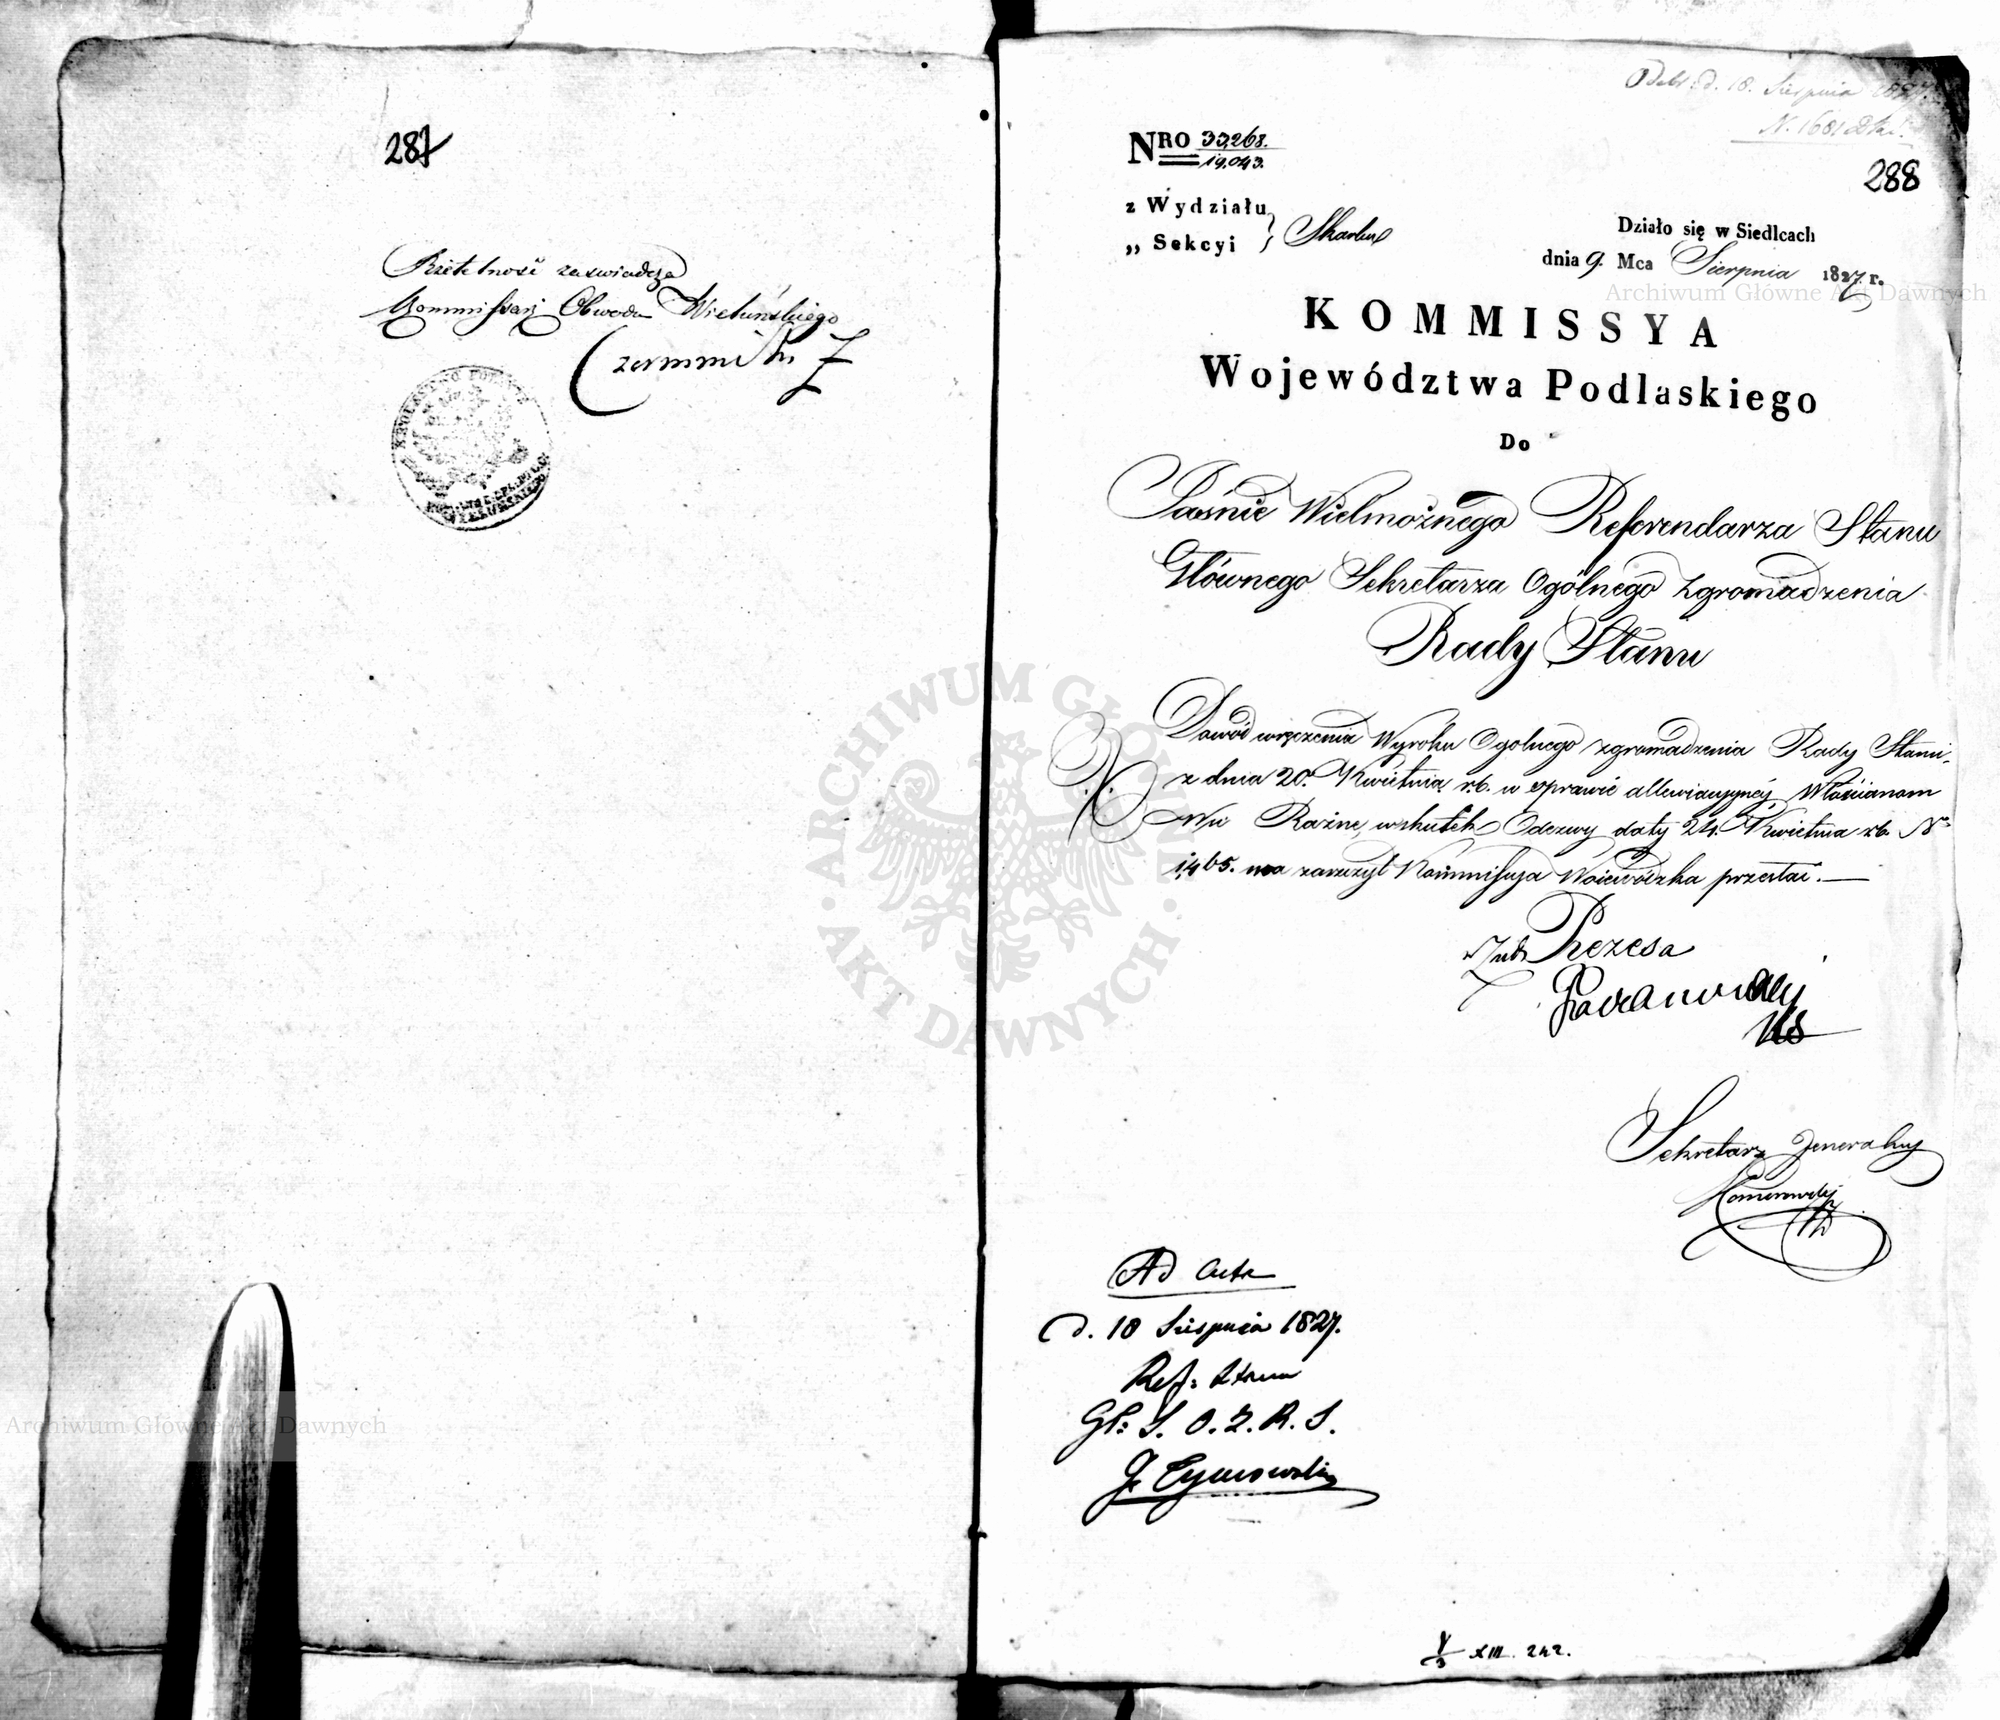 287
Rzetelność zaświadcza
Kommissarz Obwodu Wieluńskiego
288
Odebr: d. 18. Sierpnia 1827.
N. 1681
NRO 33,268.
19,043.
z Wydziału
„ Sekcyi } Skarbu
Działo się w Siedlcach
dnia 9. Mca Sierpnia 1827 r.
KOMMISSYA
Województwa Podlaskiego
Do
Jaśnie Wielmożnego Referendarza Stanu
Głównego Sekretarza Ogólnego Zgromadzenia
Rady Stanu
Dowód wręczenia Wyroku Ogolnego zgromadzenia Rady Stanu
z dnia 20. Kwietnia r.b. w sprawie allewiacyjnéj Włościanom
Wsi Raźne, wskutek Odezwy daty 24. Kwietnia r.b. No
1,465. ma zaszczyt Kommissyja Wojewódzka przesłać.—
Prezesa
Sekretarz Jeneralny
Komorowski
Ad Acta
d. 18 Sierpnia 1827.
Ref: Stanu
Gł: S. O. Z. R. S.
XIII. 242.
ARCHIWUM GŁÓWNE AKT DAWNYCH
Archiwum Główne Akt Dawnych
Archiwum Główne Akt Dawnych